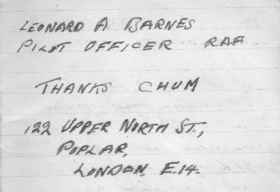 LEONARD A BARNES
PILOT OFFICER RAF
THANKS CHUM
122 UPPER NORTH ST.,
POPLAR,
LONDON, E.14.